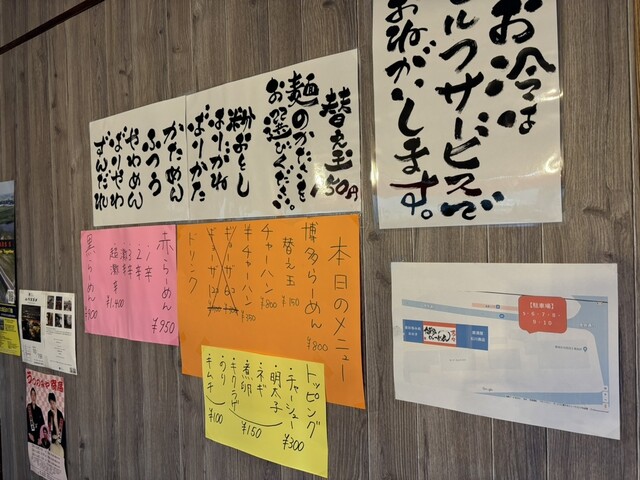 お冷は
セルフサービスで
おねがいします。
替え玉150円
麺のかたさも
お選びください。
粉おとし
はりがね
ばりかた
かためん
ふつう
やわめん
ばりやわ
ずんだれ
本日のメニュー
博多らーめん ¥800
替え玉 ¥150
チャーハン ¥800
半チャーハン ¥350
ドリンク
赤らーめん ¥950
1辛
2辛
3辛
激辛
超激辛 ¥1,400
黒らーめん ¥900
トッピング
・チャーシュー ¥300
・明太子
・ネギ
・煮卵
・キクラゲ ¥150
・のり
・キムチ ¥100
【駐車場】